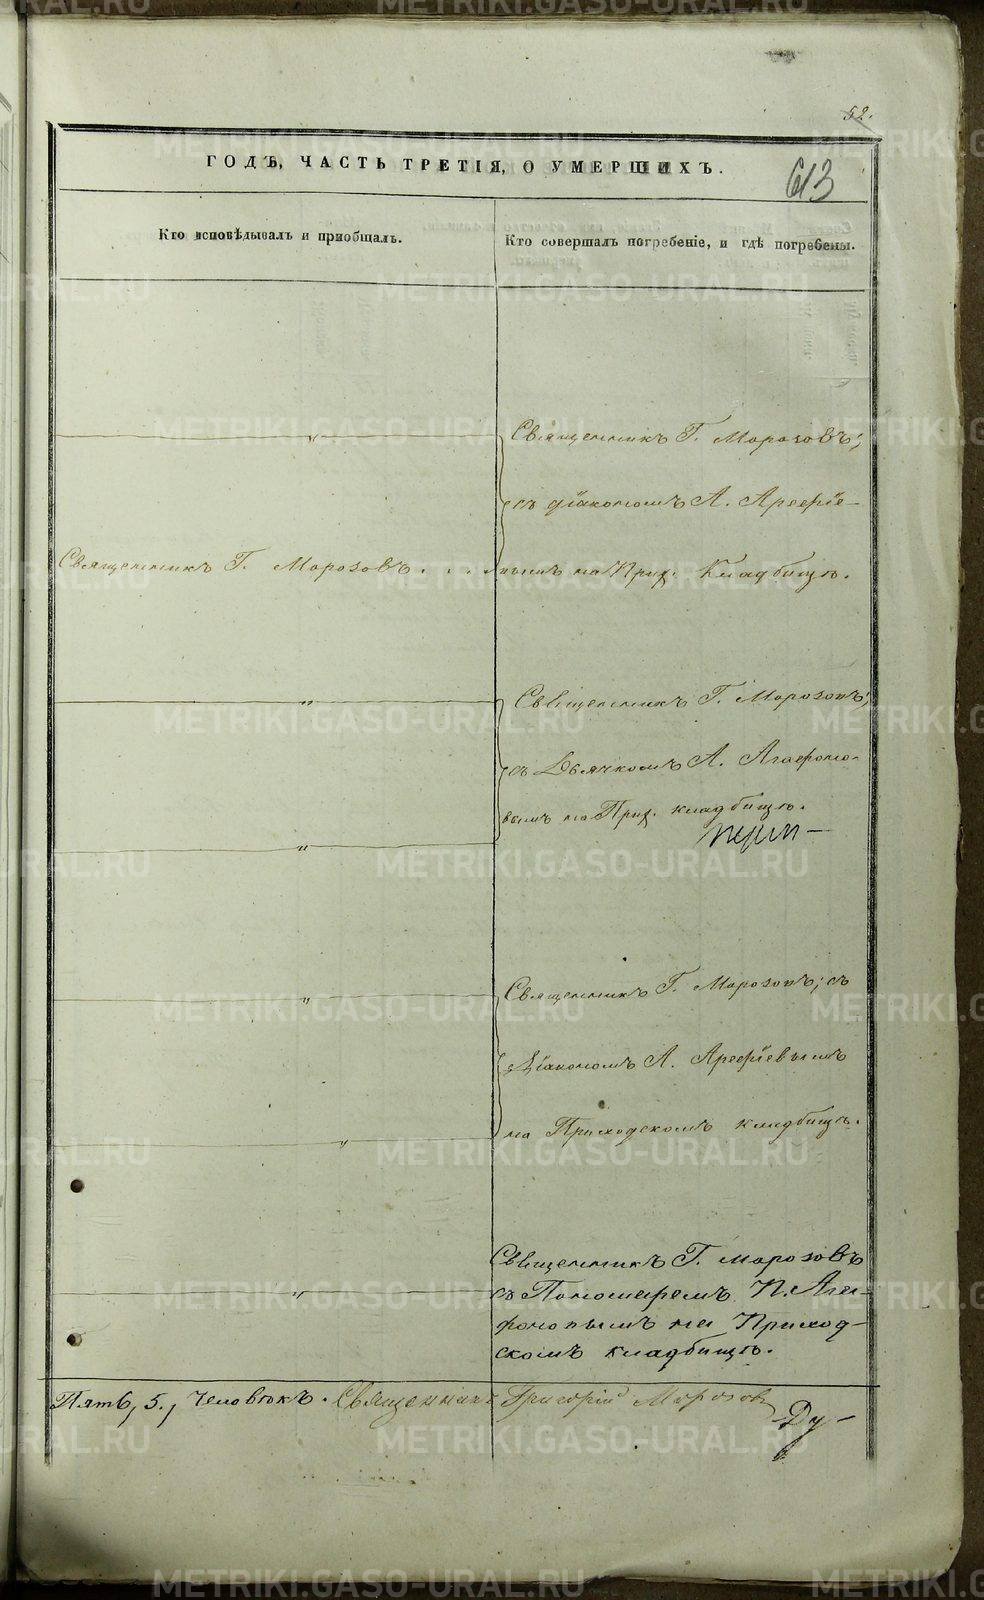 52.
ГОДѢ, ЧАСТЬ ТРЕТІЯ, О УМЕРШИХЪ.
613
Кто исповѣдывалъ и пріобщалъ.
Кто совершалъ погребеніе, и гдѣ погребены.
Священникъ Г. Морозовъ;
съ діакономъ А. Арефіе-
Священникъ Г. Морозовъ . . .
вымъ на Прих. Кладбищѣ.
Священникъ Г. Морозовъ;
съ Дьячкомъ А. Агафоно-
вымъ на Прих. кладбищѣ.
Священникъ Г. Морозовъ; съ
Діакономъ А. Арефіевымъ
на Приходскомъ кладбищѣ.
Священникъ Г. Морозовъ
съ Пономаремъ П. Ага-
фоновымъ на Приход-
скомъ кладбищѣ.
Пять, 5., человѣкъ. Священникъ Григорій Морозовъ
Ду-
METRIKI.GASO-URAL.RU